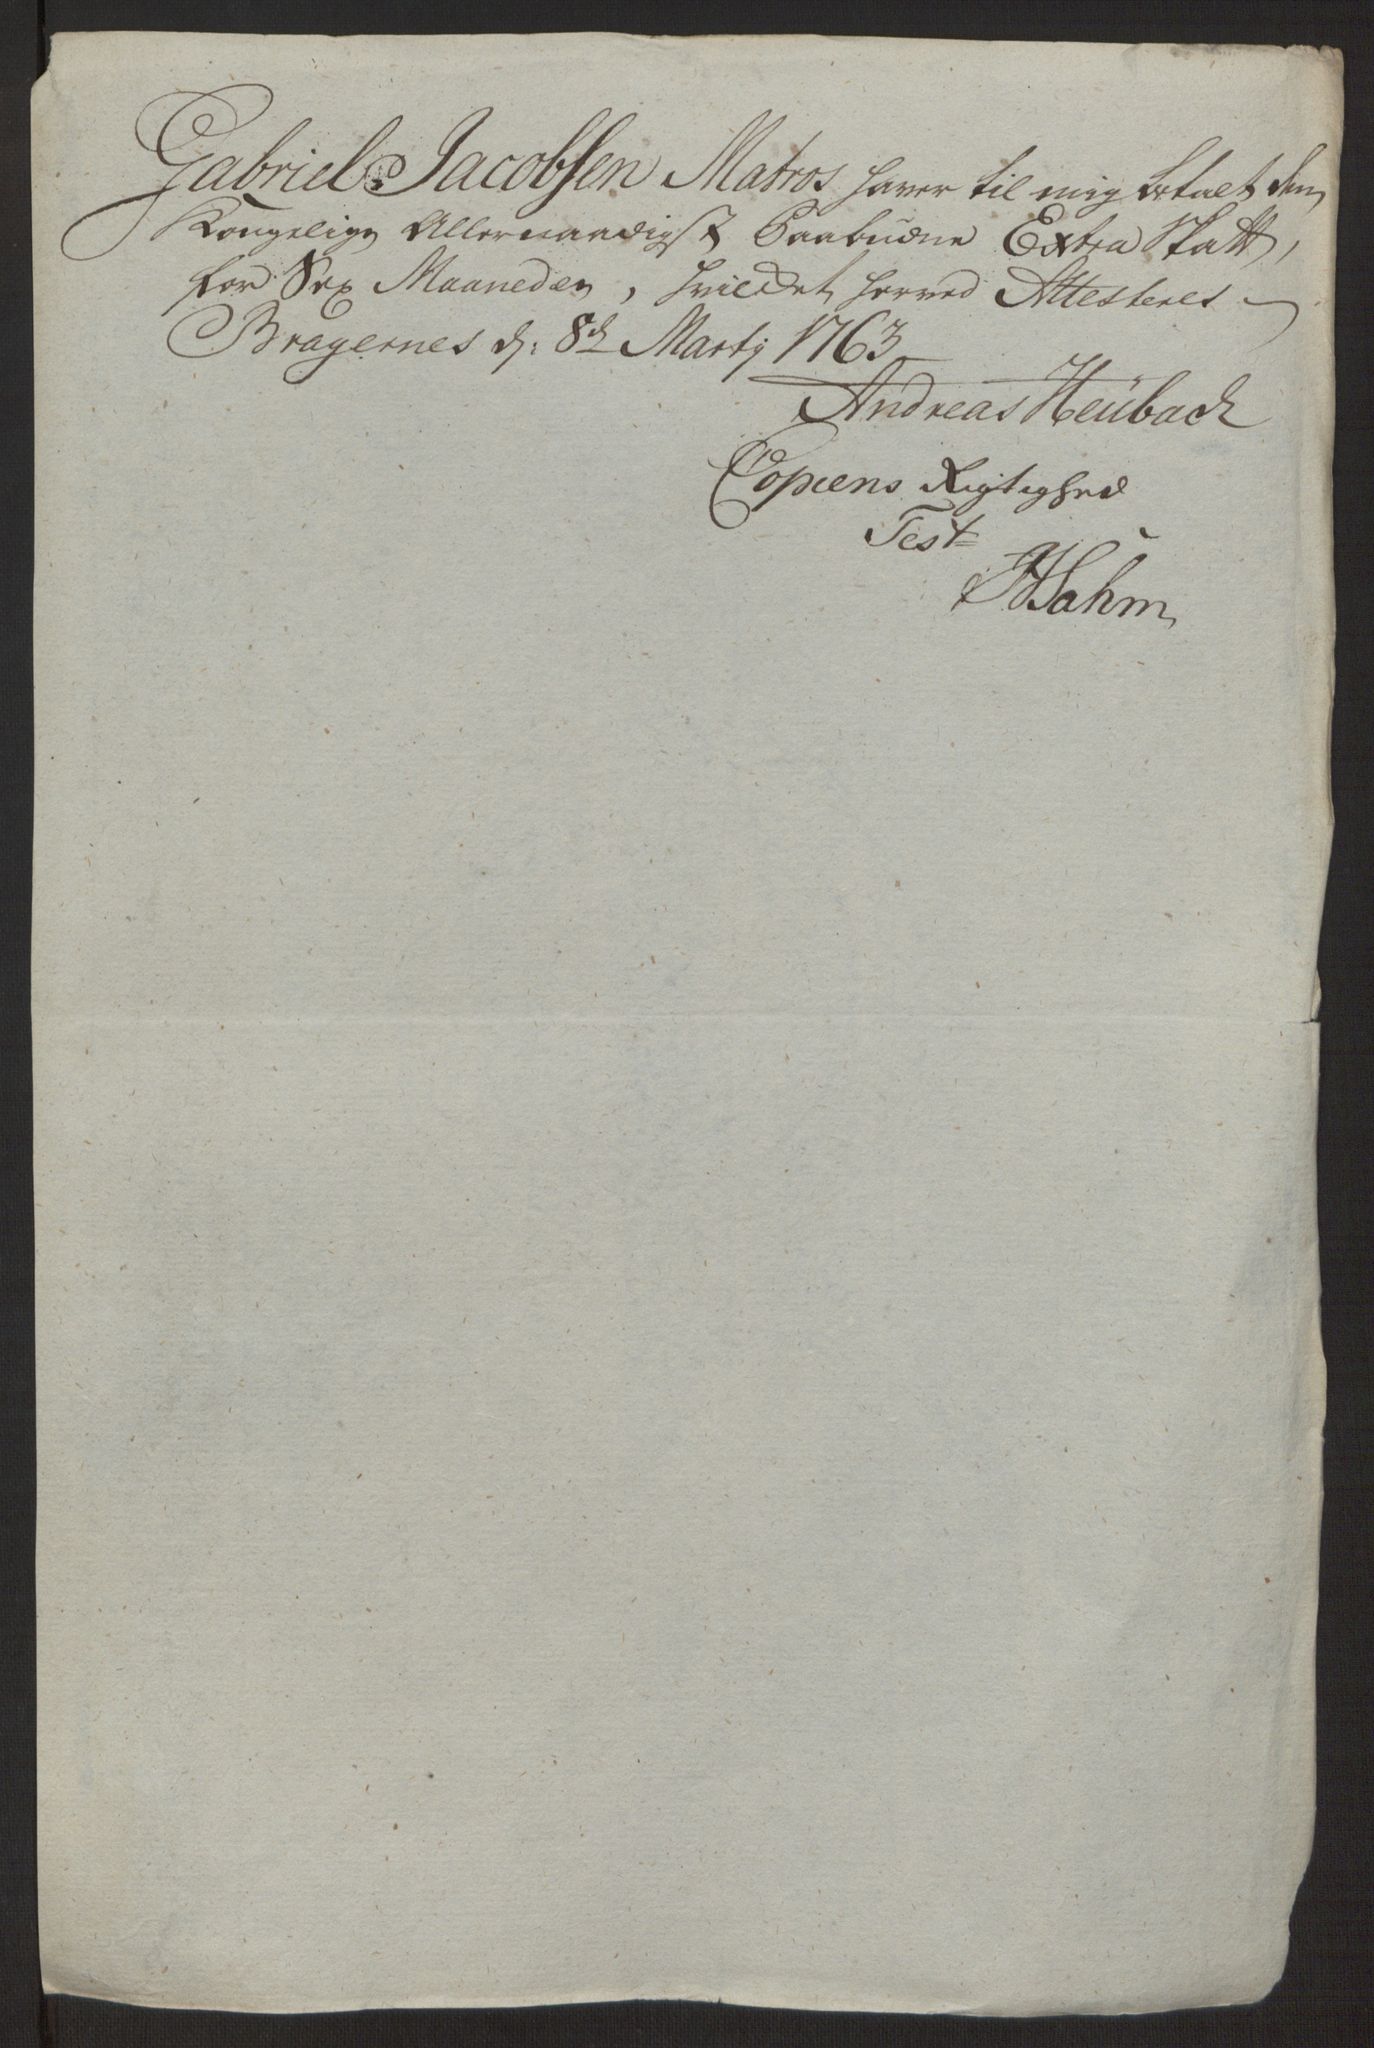 Gabriel Jacobsen Matros haver til mig betalt den
Kongelige Allernaadigst Paabudne Extra Skatt,
for Sex Maaneder, hvilket herved Attesteres
Bragernes d: 8d Martj 1763
Andreas Heuback
Copiens Rigtighed
Test